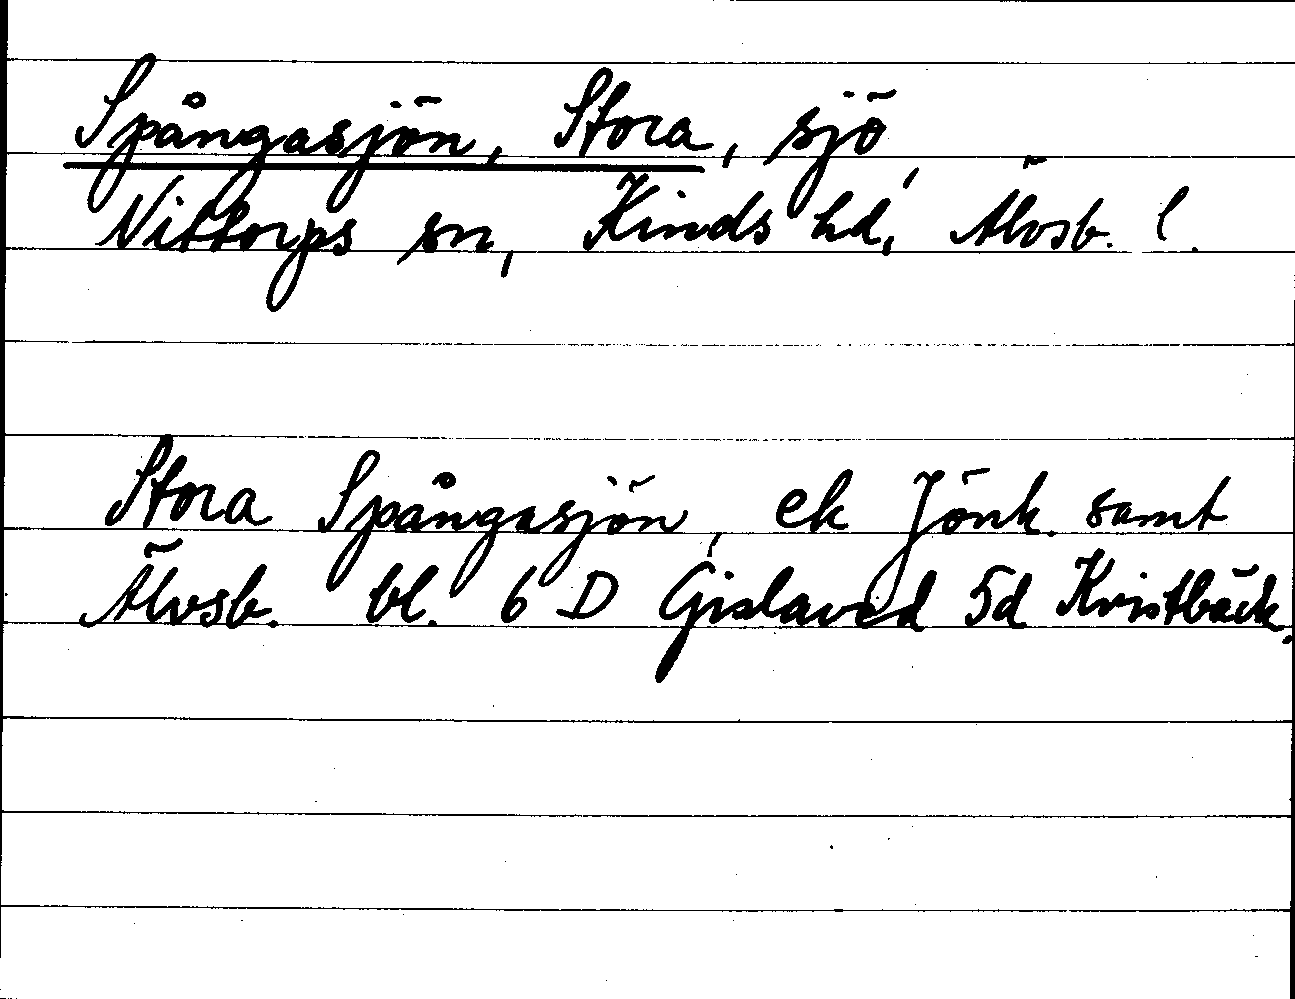 Spångasjön, Stora, sjö,
Nittorps sn, Kinds hd, Älvsb. l.
Stora Spångasjön, ek Jönk. samt
Älvsb. bl. 6 D Gislaved 5d Kvistbäck.